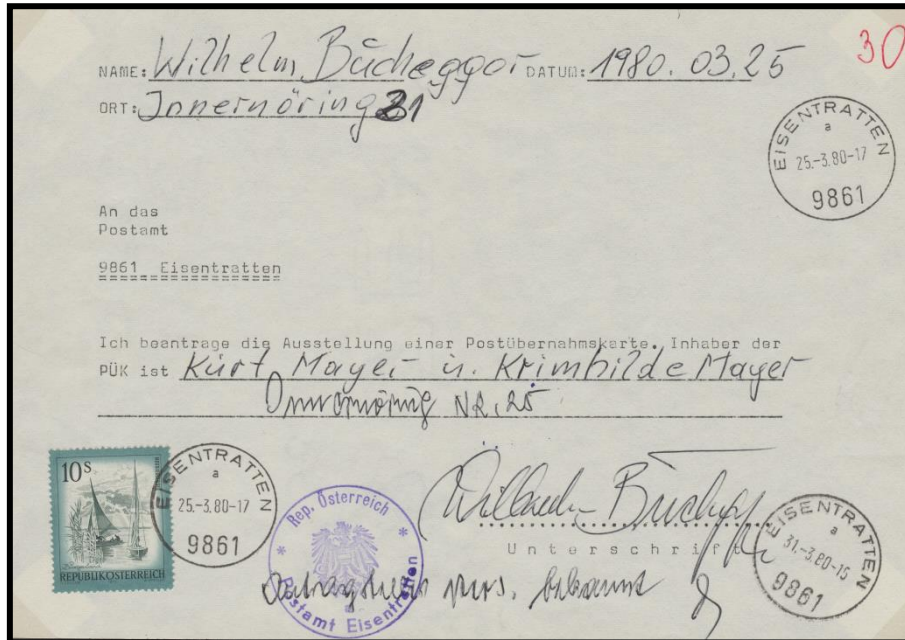 30
NAME: Wilhelm Bücheggor DATUM: 1980. 03. 25
ORT: Innernöring 21
EISENTRATTEN
a
25.-3.80-17
9861
An das
Postamt
9861 Eisentratten
Ich beantrage die Ausstellung einer Postübernahmskarte. Inhaber der
PÜK ist Kurt Mayer u. Krimhilde Mayer
Innernöring NR. 25
10 S
REPUBLIK ÖSTERREICH
EISENTRATTEN
a
25.-3.80-17
9861
Rep. Österreich
Postamt Eisentratten
a
Unterschrift
EISENTRATTEN
a
31.-3.80-15
9861
pers. bekannt